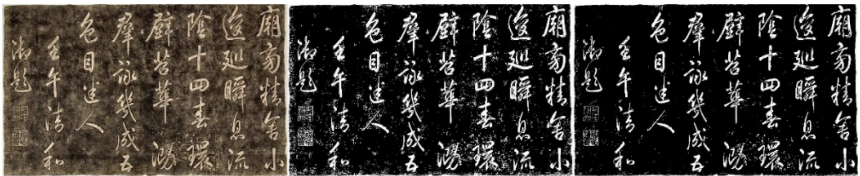 廟旁精舍小
逡廵瞬息流
陰十四春環
壁苔華湯
羣詠幾成五
色目迷人
壬午清和
御題
廟旁精舍小
逡廵瞬息流
陰十四春環
壁苔華湯
羣詠幾成五
色目迷人
壬午清和
御題
廟旁精舍小
逡廵瞬息流
陰十四春環
壁苔華湯
羣詠幾成五
色目迷人
壬午清和
御題